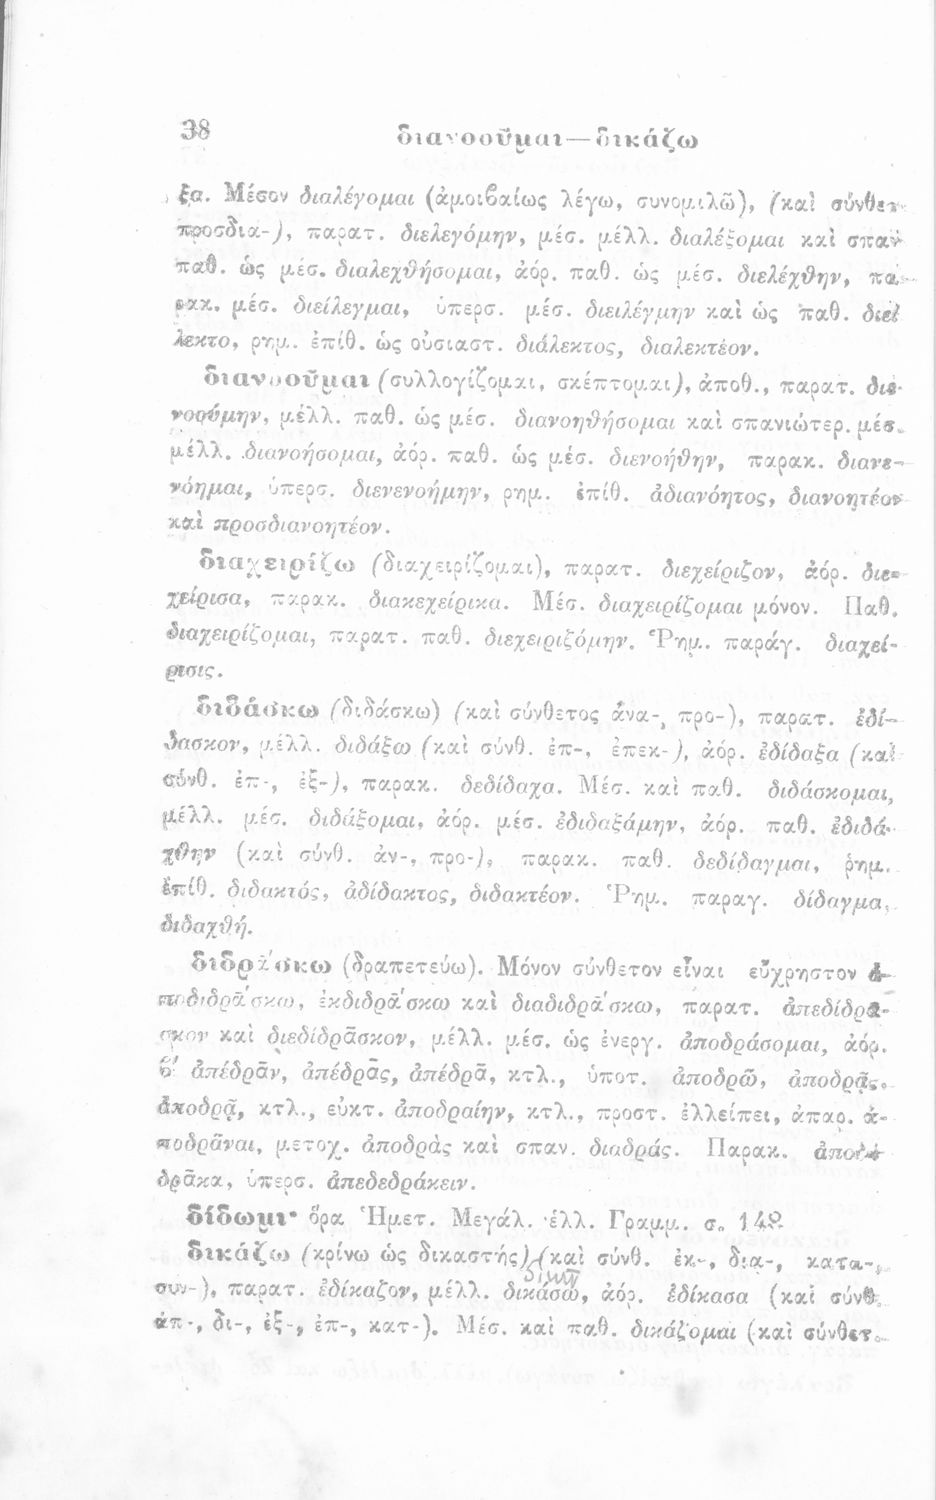 38
διανοοῦμαι—δικάζω
ξα. Μέσον διαλέγομαι (ἀμοιβαίως λέγω, συνομιλῶ), (καὶ σύνθετ.
προσδια-), παρατ. διελεγόμην, μέσ. μέλλ. διαλέξομαι καὶ σπαν
παθ. ὡς μέσ. διαλεχθήσομαι, ἀόρ. παθ. ὡς μέσ. διελέχθην, πα-
ρακ. μέσ. διείλεγμαι, ὑπερσ. μέσ. διειλέγμην καὶ ὡς παθ. διεί
λεκτο, ρημ. ἐπίθ. ὡς οὐσιαστ. διάλεκτος, διαλεκτέον.
διανοοῦμαι (συλλογίζομαι, σκέπτομαι), ἀποθ., παρατ. διε-
νοούμην, μέλλ. παθ. ὡς μέσ. διανοηθήσομαι καὶ σπανιώτερ. μέσ.
μέλλ. διανοήσομαι, ἀόρ. παθ. ὡς μέσ. διενοήθην, παρακ. διανε-
νόημαι, ὑπερσ. διενενοήμην, ρημ. ἐπίθ. ἀδιανόητος, διανοητέον
καὶ προσδιανοητέον.
διαχειρίζω (διαχειρίζομαι), παρατ. διεχείριζον, ἀόρ. διε-
χείρισα, παρακ. διακεχείρικα. Μέσ. διαχειρίζομαι μόνον. Παθ.
διαχειρίζομαι, παρατ. παθ. διεχειριζόμην. Ῥημ. παράγ. διαχεί-
ρισις.
διδάσκω (διδάσκω) (καὶ σύνθετος ἀνα-, προ-), παρατ. ἐδί-
δασκον, μέλλ. διδάξω (καὶ σύνθ. ἐπ-, ἐπεκ-), ἀόρ. ἐδίδαξα (καὶ
σύνθ. ἐπ-, ἐξ-), παρακ. δεδίδαχα. Μέσ. καὶ παθ. διδάσκομαι,
μέλλ. μέσ. διδάξομαι, ἀόρ. μέσ. ἐδιδαξάμην, ἀόρ. παθ. ἐδιδά-
χθην (καὶ σύνθ. ἀν-, προ-), παρακ. παθ. δεδίδαγμαι, ῥημ.
ἐπίθ. διδακτός, ἀδίδακτος, διδακτέον. Ῥημ. παραγ. δίδαγμα,
διδαχθή.
διδρᾱ́σκω (δραπετεύω). Μόνον σύνθετον εἶναι εὔχρηστον ἀ-
ποδιδρᾱ́σκω, ἐκδιδρᾱ́σκω καὶ διαδιδρᾱ́σκω, παρατ. ἀπεδίδρα-
σκον καὶ διεδίδρᾱσκον, μέλλ. μέσ. ὡς ἐνεργ. ἀποδράσομαι, ἀόρ.
β′ ἀπέδρᾱν, ἀπέδρᾱς, ἀπέδρᾱ, κτλ., ὑποτ. ἀποδρῶ, ἀποδρᾷς,
ἀποδρᾷ, κτλ., εὐκτ. ἀποδραίην, κτλ., προστ. ἐλλείπει, ἀπαρ. ἀ-
ποδρᾶναι, μετοχ. ἀποδρὰς καὶ σπαν. διαδράς. Παρακ. ἀποδέ-
δρᾱκα, ὑπερσ. ἀπεδεδράκειν.
δίδωμι· ὅρα Ἡμετ. Μεγάλ. ἑλλ. Γραμμ. σ. 148.
δικάζω (κρίνω ὡς δικαστής) (καὶ σύνθ. ἐκ-, δια-, κατα-,
συν-), παρατ. ἐδίκαζον, μέλλ. δικάσω, ἀόρ. ἐδίκασα (καὶ σύνθ.
ἀπ-, δι-, ἐξ-, ἐπ-, κατ-). Μέσ. καὶ παθ. δικάζομαι (καὶ σύνθετ.